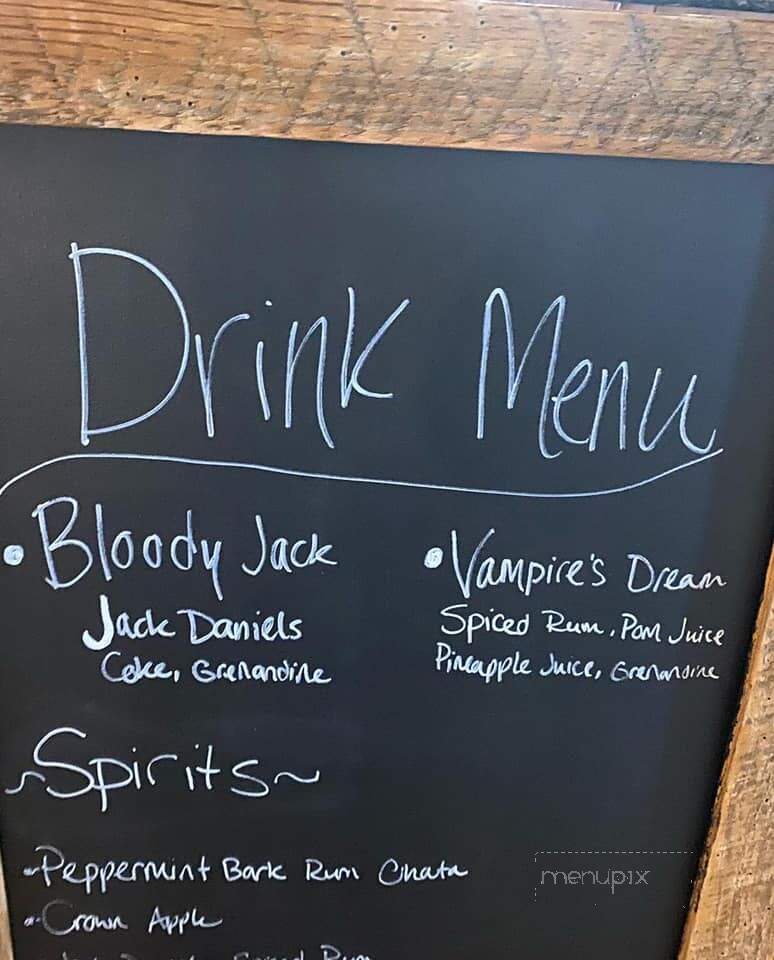 Drink Menu
• Bloody Jack
Jack Daniels
Coke, Grenandine
• Vampire's Dream
Spiced Rum, Pom Juice
Pineapple Juice, Grenandine
~Spirits~
-Peppermint Bark Rum Chata
-Crown Apple
Spiced Rum
menupix